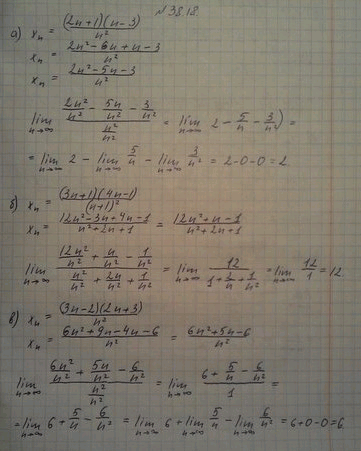 №38.18.
а) xₙ = (2n+1)(n-3)/n²
xₙ = 2n²-6n+n-3/n²
xₙ = 2n²-5n-3/n²
lim n→∞ (2n²/n² - 5n/n² - 3/n²)/(n²/n²) = lim n→∞ 2 - 5/n - 3/n²) =
= lim n→∞ 2 - lim n→∞ 5/n - lim n→∞ 3/n² = 2-0-0=2.
б) xₙ = (3n+1)(4n-1)/(n+1)²
xₙ = 12n²-3n+4n-1/n²+2n+1 = 12n²+n-1/n²+2n+1
lim n→∞ (12n²/n² + n/n² - 1/n²)/(n²/n² + 2n/n² + 1/n²) = lim n→∞ 12/(1+2/n+1/n²) = lim n→∞ 12/1 = 12.
в) xₙ = (3n-2)(2n+3)/n²
xₙ = 6n²+9n-4n-6/n² = 6n²+5n-6/n²
lim n→∞ (6n²/n² + 5n/n² - 6/n²)/(n²/n²) = lim n→∞ (6+5/n-6/n²)/1 =
= lim n→∞ 6+5/n-6/n² = lim n→∞ 6+lim n→∞ 5/n - lim n→∞ 6/n² = 6+0-0=6.